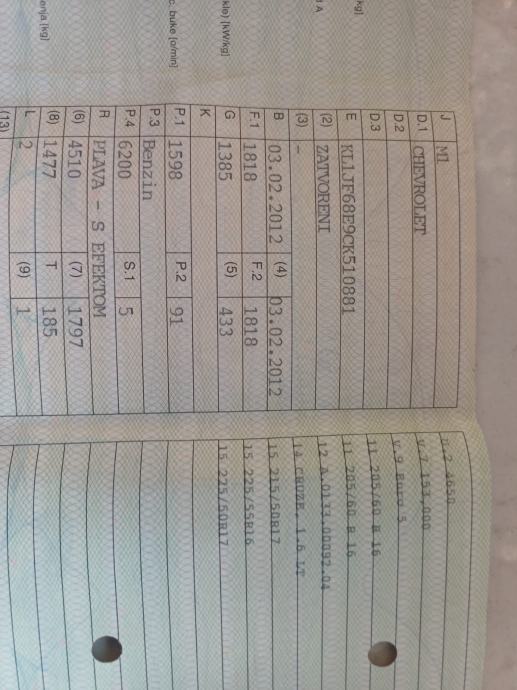 J M1
D.1 CHEVROLET
D.2
D.3
E KL1JF68E9CK510881
(2) ZATVORENI
(3) -
B 03.02.2012 (4) 03.02.2012
F.1 1818 F.2 1818
G 1385 (5) 433
K
P.1 1598 P.2 91
P.3 Benzin
P.4 6200 S.1 5
R PLAVA - S EFEKTOM
(6) 4510 (7) 1797
(8) 1477 T 185
L 2 (9) 1
(13)
4650
V.7 153,000
V.9 Euro 5
11 205/60 R 16
11 205/60 R 16
12 A.0133.00092.04
14 CRUZE, 1.6 LT
15 215/50R17
15 225/55R16
15 225/50R17
kg]
A
kle) [kW/kg]
c. buke [o/min]
enja [kg]